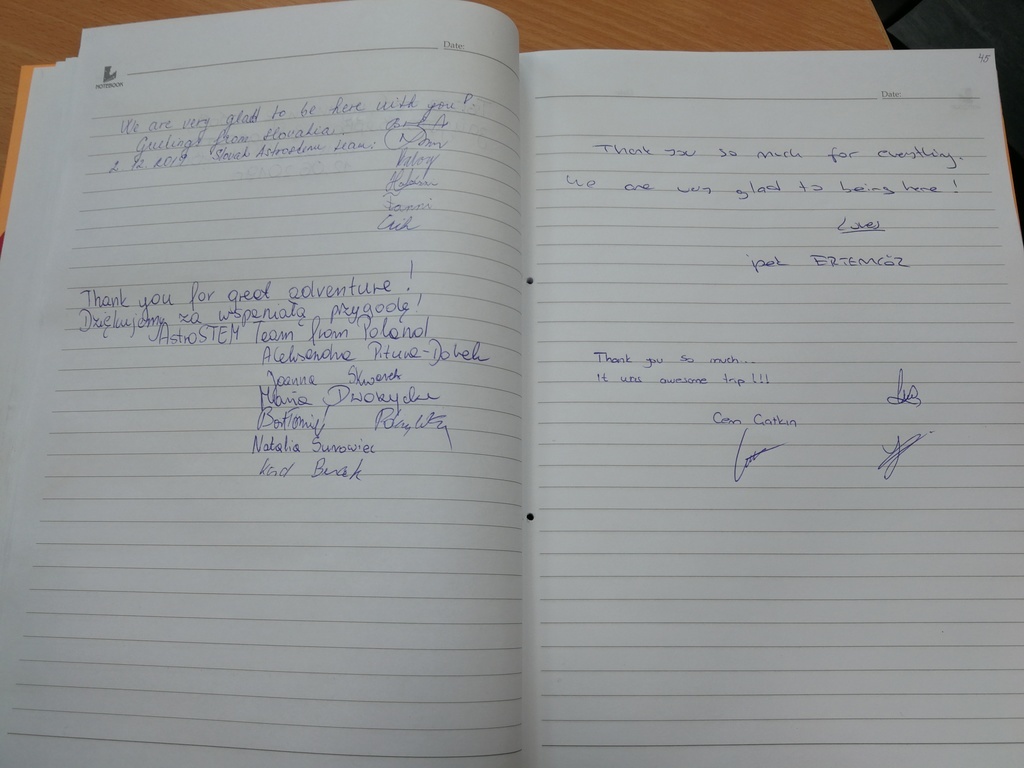 NOTEBOOK
Date:
We are very glad to be here with you!
Greetings from Slovakia.
2.12.2019 Slovak Astrostem team:
Fanni
Thank you for great adventure!
Dziękujemy za wspaniałą przygodę!
AstroSTEM Team from Poland
Aleksandra Pitura-Dobek
Joanna Skwarek
Maria
Bartłomiej
Natalia Surowiec
45
Date:
Thank you so much for everything.
We are very glad to being here!
ipek ERTEMGÖZ
Thank you so much...
It was awesome trip!!!
Cem